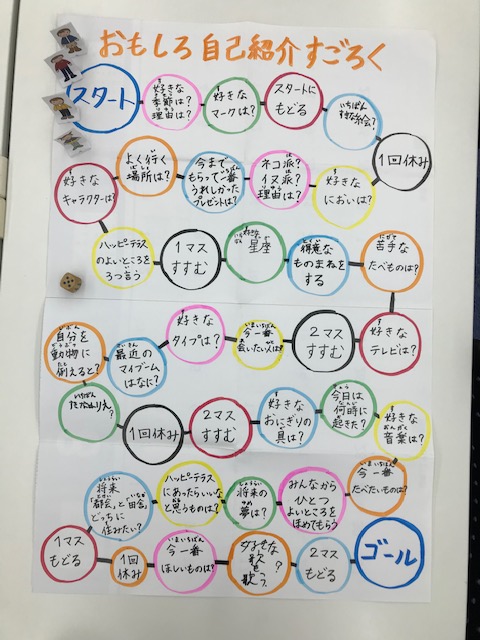 おもしろ自己紹介すごろく
スタート
好きな
季節は?
理由は?
好きな
マークは?
スタートに
もどる
いちばん
1回休み
好きな
においは?
ネコ派?
イヌ派?
理由は?
今まで
もらって一番
うれしかった
プレゼントは?
よく行く
場所は?
好きな
キャラクターは?
ハッピーテラス
のよいところを
3つ言う
1マス
すすむ
星座
得意な
ものまねを
する
苦手な
たべものは?
好きな
テレビは?
2マス
すすむ
今一番
会いたい人は?
好きな
タイプは?
最近の
マイブーム
はなに?
自分を
動物に
例えると?
いちばん
1回休み
2マス
すすむ
好きな
おにぎりの
具は?
今日は
何時に
起きた?
好きな
音楽は?
今一番
たべたいものは?
みんなから
ひとつ
よいところを
ほめてもらう
将来の
夢は?
ハッピーテラス
にあったらいいな
と思うものは?
将来
「都会」と「田舎」
どっちに
住みたい?
1マス
もどる
1回
休み
今一番
ほしいものは?
2マス
もどる
ゴール